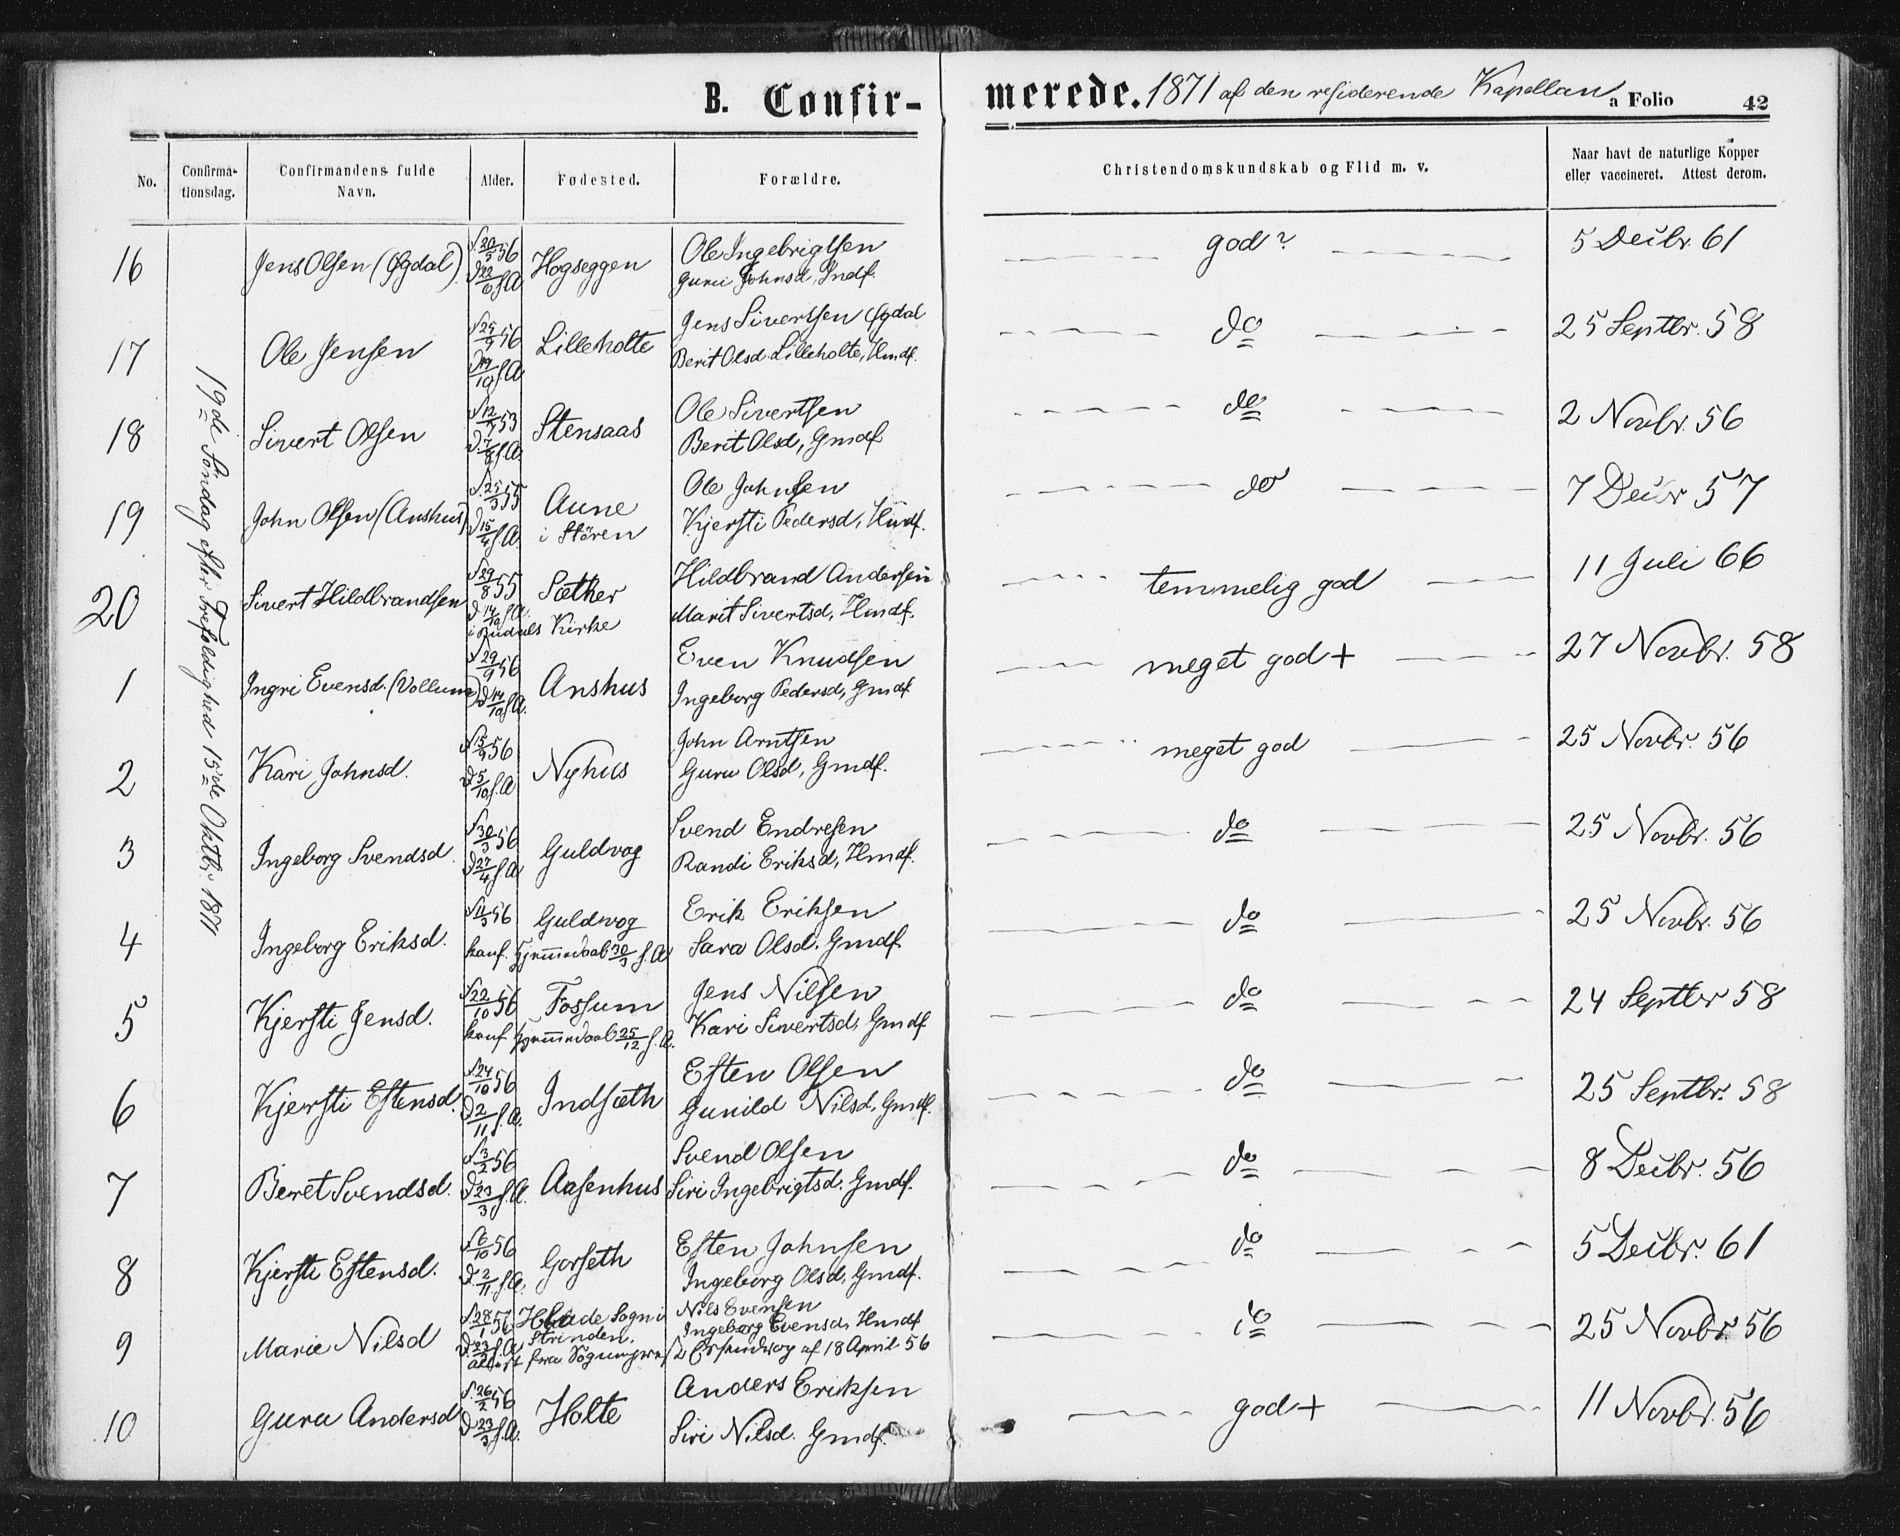 B. Confir-
merede. 1871 af den residerende Kapellan a Folio 42
No.
Confirma-
tionsdag.
Confirmandens fulde
Navn.
Alder.
Fødested.
Forældre.
Christendomskundskab og Flid m. v.
Naar havt de naturlige Kopper
eller vaccineret. Attest derom.
19de Søndag efter Trefoldighed 15de Oktbr. 1871
16 Jens Olsen (Øgdal) f. 20/5 56 Hogseggen Ole Ingebrigtsen god? 5 Decbr. 61
d 22/6 s. A. Guru Johnsd, Gmdf.
17 Ole Jensen f 25/9 56 Lilleholte Jens Sivertsen Øgdal do 25 Septbr. 58
d 19/10 s. A. Berit Olsd Lilleholte, Hmdf.
18 Sivert Olsen f 12/7 53 Stensaas Ole Sivertsen do 2 Novbr. 56
d. 7/8 s. A. Berit Olsd, Gmdf
19 John Olsen (Anshus) f. 25/3 55 Aune Ole Johnsen do 7 Decbr 57
d 15/4 s. A. i Støren Kjersti Pedersd, Hmdf.
20 Sivert Hildbrandsen f 29/8 55 Sæther Hildbrand Andersen temmelig god 11 Juli 66
d 14/10 s. A. Marit Sivertsd, Hmdf.
i Budals Kirke
1 Ingri Evensd. (Vollum) f 29/9 56 Anshus Even Knudsen meget god + 27 Novbr. 58
d 14/10 s. A. Ingeborg Pedersd, Gmdf
2 Kari Johnsd. f 15/9 56 Nyhus John Arntsen meget god 25 Novbr. 56
d 5/10 s. A Guru Olsd, Gmdf.
3 Ingeborg Svendsd. f 30/3 56 Guldvog Svend Endresen do 25 Novbr. 56
d 27/4 s. A Randi Eriksd, Hmdf.
4 Ingeborg Eriksd. f 11/3 56 Guldvog Erik Eriksen do 25 Novbr. 56
konf. hjemmedaab 30/3 s. A Sara Olsd. Gmdf.
5 Kjersti Jensd. f 22/10 56 Fossum Jens Nilsen do 24 Septbr 58
konf hjemmedaab 25/12 s. A. Kari Sivertsd, Gmdf
6 Kjersti Estensd. f 24/10 56 Indsæth Esten Olsen do 25 Septbr. 58
d 2/11 s. A. Gunild Nilsd, Gmdf.
7 Beret Svendsd. f 3/2 56 Aasenhus Svend Olsen do 8 Decbr. 56
d 23/3 s. A. Siri Ingebrigtsd. Gmdf.
8 Kjersti Estensd. f 6/10 56 Gorseth Esten Johnsen do 5 Decbr. 61
d. 2/11 s. A. Ingeborg Olsd, Gmdf.
9 Marie Nilsd f 28/1 56 Hlade Sogn i Nils Evensen do 25 Novbr. 56
Strinden. Ingeborg Evensd, Hmdf
attest fra Sogneprest af 18 April 56
10 Guru Andersd f. 26/2 56 Holte Anders Eriksen god + 11 Novbr. 56
d 23/3 s. A. Siri Nilsd. Gmdf.